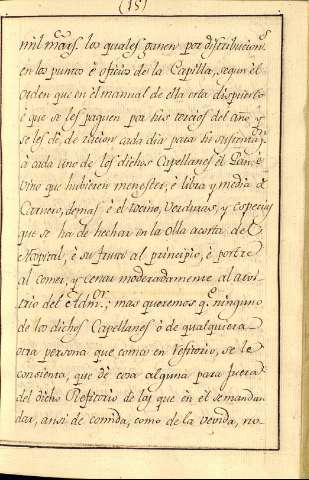 (15)
mil mars. los quales ganen por distribucions
en los puntos è oficios de la Capilla, segun èl
orden que en el manual de ella esta dispuesto
è que se les paguen por sus tercios del año, y
se les dè de racion cada dia para su sustentam.to
à cada uno de los dichos Capellanes el Pan, è
vino que hubieren menester, è libra y media de
Carnero, demas è el tocino, verduras, y especias
que se ha de hechar en la olla acosta del
Hospital, è su fruta al principio, è postre
al comer, y cenar moderadamente al arvi-
trio del Adm.or; mas queremos q.e ninguno
de los dichos Capellanes ò de qualquiera
otra persona que coma en refitorio, se le
consienta, que dè cosa alguna para fuera
del dicho Refitorio de las que en èl se mandan
dar, ansi de comida, como de la vevida, no